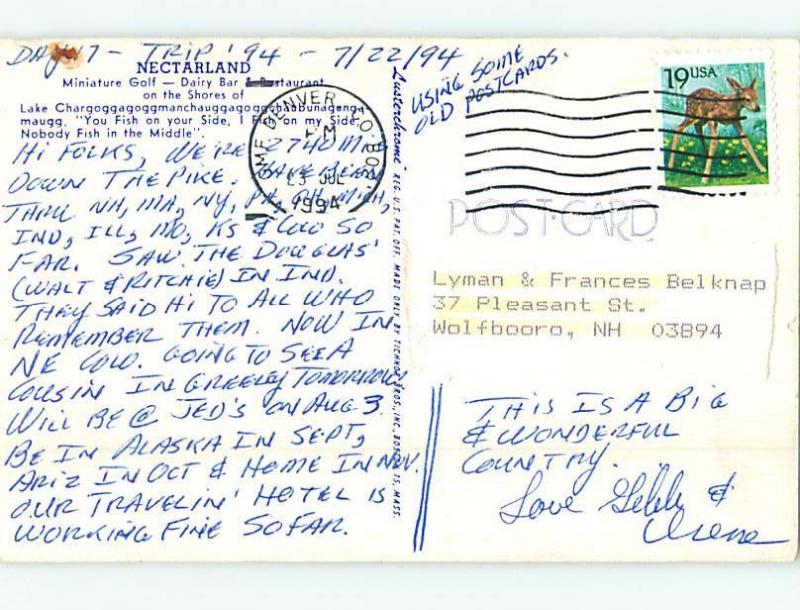 DAY 17 - TRIP '94 - 7/22/94
USING SOME
OLD POSTCARDS.
NECTARLAND
Miniature Golf — Dairy Bar & Restaurant
on the Shores of
Lake Chargoggagoggmanchauggagoggchaubunagunga-
maugg. "You Fish on your Side, I Fish on my Side,
Nobody Fish in the Middle".
HI FOLKS, WE'RE 2740 MI.
DOWN THE PIKE. HAVE BEEN
THRU NH, MA, NY, PA, OH, MICH,
IND, ILL, MO, KS & COLO SO
FAR. SAW THE DOUGLAS'
(WALT & RITCHIE) IN IND.
THEY SAID HI TO ALL WHO
REMEMBER THEM. NOW IN
NE COLO. GOING TO SEE A
COUSIN IN GREELEY TOMORROW
WILL BE @ JED'S ON AUG 3.
BE IN ALASKA IN SEPT,
ARIZ IN OCT & HOME IN NOV.
OUR TRAVELIN' HOTEL IS
WORKING FINE SO FAR.
Lusterchrome REG. U.S. PAT. OFF. MADE ONLY BY TICHNOR BROS., INC., BOSTON 15, MASS.
GMF DENVER, CO 802
PM
23 JUL
1994
19USA
POST CARD
Lyman & Frances Belknap
37 Pleasant St.
Wolfbooro, NH 03894
THIS IS A BIG
& WONDERFUL
COUNTRY.
Love Gibby &
Irene